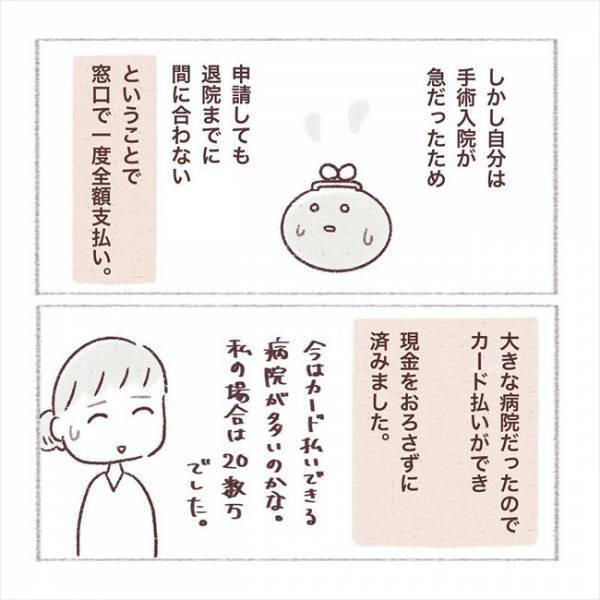 しかし自分は
手術入院が
急だったため
申請しても
退院までに
間に合わない
ということで
窓口で一度全額支払い。
大きな病院だったので
カード払いができ
現金をおろさずに
済みました。
今はカード払いできる
病院が多いのかな。
私の場合は20数万
でした。